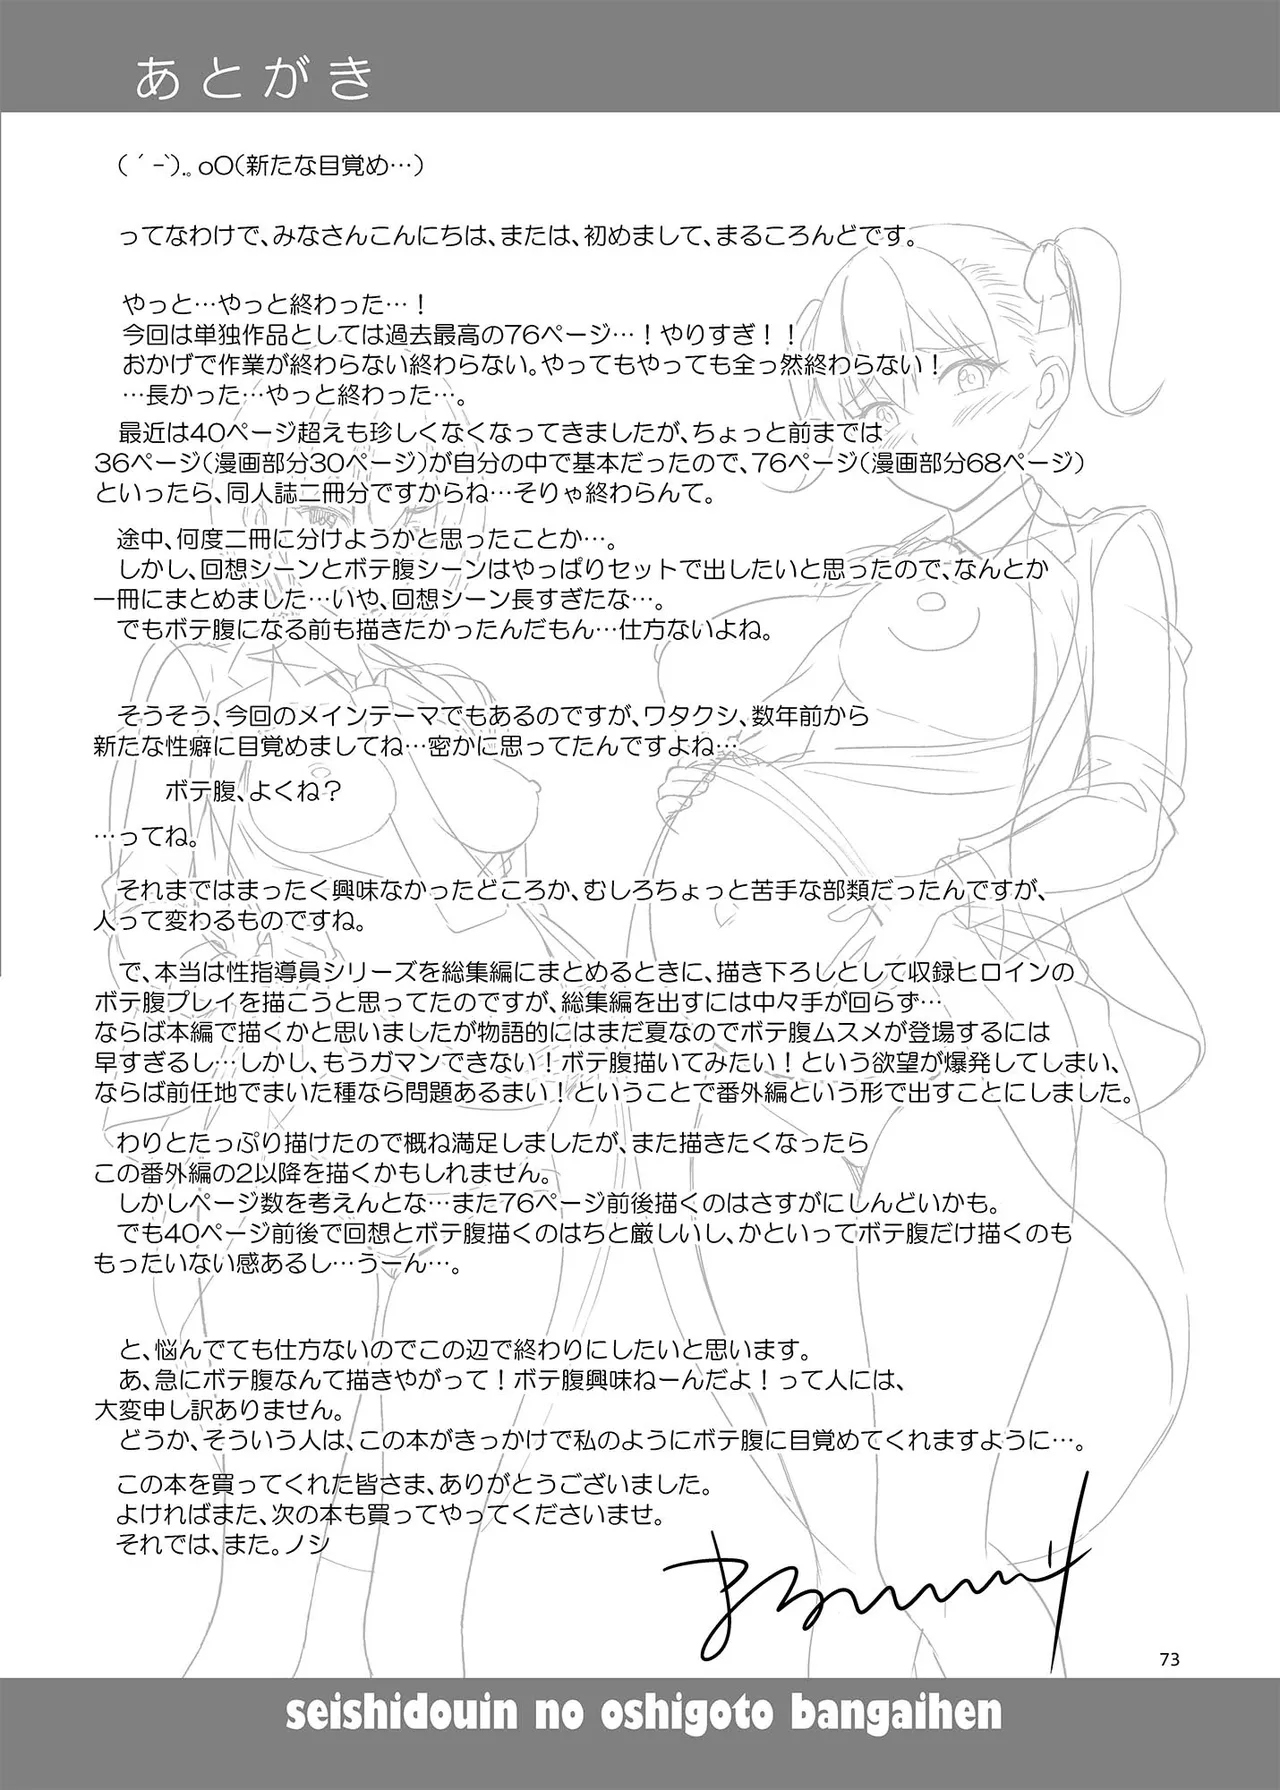 あとがき
( ´ -`).｡oO(新たな目覚め…)
ってなわけで、みなさんこんにちは、または、初めまして、まるころんどです。
やっと…やっと終わった…！
今回は単独作品としては過去最高の76ページ…！やりすぎ！！
おかげで作業が終わらない終わらない。やってもやっても全っ然終わらない！
…長かった…やっと終わった…。
最近は40ページ超えも珍しくなくなってきましたが、ちょっと前までは
36ページ(漫画部分30ページ)が自分の中で基本だったので、76ページ(漫画部分68ページ)
といったら、同人誌二冊分ですからね…そりゃ終わらんて。
途中、何度二冊に分けようかと思ったことか…。
しかし、回想シーンとボテ腹シーンはやっぱりセットで出したいと思ったので、なんとか
一冊にまとめました…いや、回想シーン長すぎたな…。
でもボテ腹になる前も描きたかったんだもん…仕方ないよね。
そうそう、今回のメインテーマでもあるのですが、ワタクシ、数年前から
新たな性癖に目覚めましてね…密かに思ってたんですよね…
ボテ腹、よくね？
…ってね。
それまではまったく興味なかったどころか、むしろちょっと苦手な部類だったんですが、
人って変わるものですね。
で、本当は性指導員シリーズを総集編にまとめるときに、描き下ろしとして収録ヒロインの
ボテ腹プレイを描こうと思ってたのですが、総集編を出すには中々手が回らず…
ならば本編で描くかと思いましたが物語的にはまだ夏なのでボテ腹ムスメが登場するには
早すぎるし…しかし、もうガマンできない！ボテ腹描いてみたい！という欲望が爆発してしまい、
ならば前任地でまいた種なら問題あるまい！ということで番外編という形で出すことにしました。
わりとたっぷり描けたので概ね満足しましたが、また描きたくなったら
この番外編の2以降を描くかもしれません。
しかしページ数を考えんとな…また76ページ前後描くのはさすがにしんどいかも。
でも40ページ前後で回想とボテ腹描くのはちと厳しいし、かといってボテ腹だけ描くのも
もったいない感あるし…うーん…。
と、悩んでても仕方ないのでこの辺で終わりにしたいと思います。
あ、急にボテ腹なんて描きやがって！ボテ腹興味ねーんだよ！って人には、
大変申し訳ありません。
どうか、そういう人は、この本がきっかけで私のようにボテ腹に目覚めてくれますように…。
この本を買ってくれた皆さま、ありがとうございました。
よければまた、次の本も買ってやってくださいませ。
それでは、また。ノシ
73
seishidouin no oshigoto bangaihen